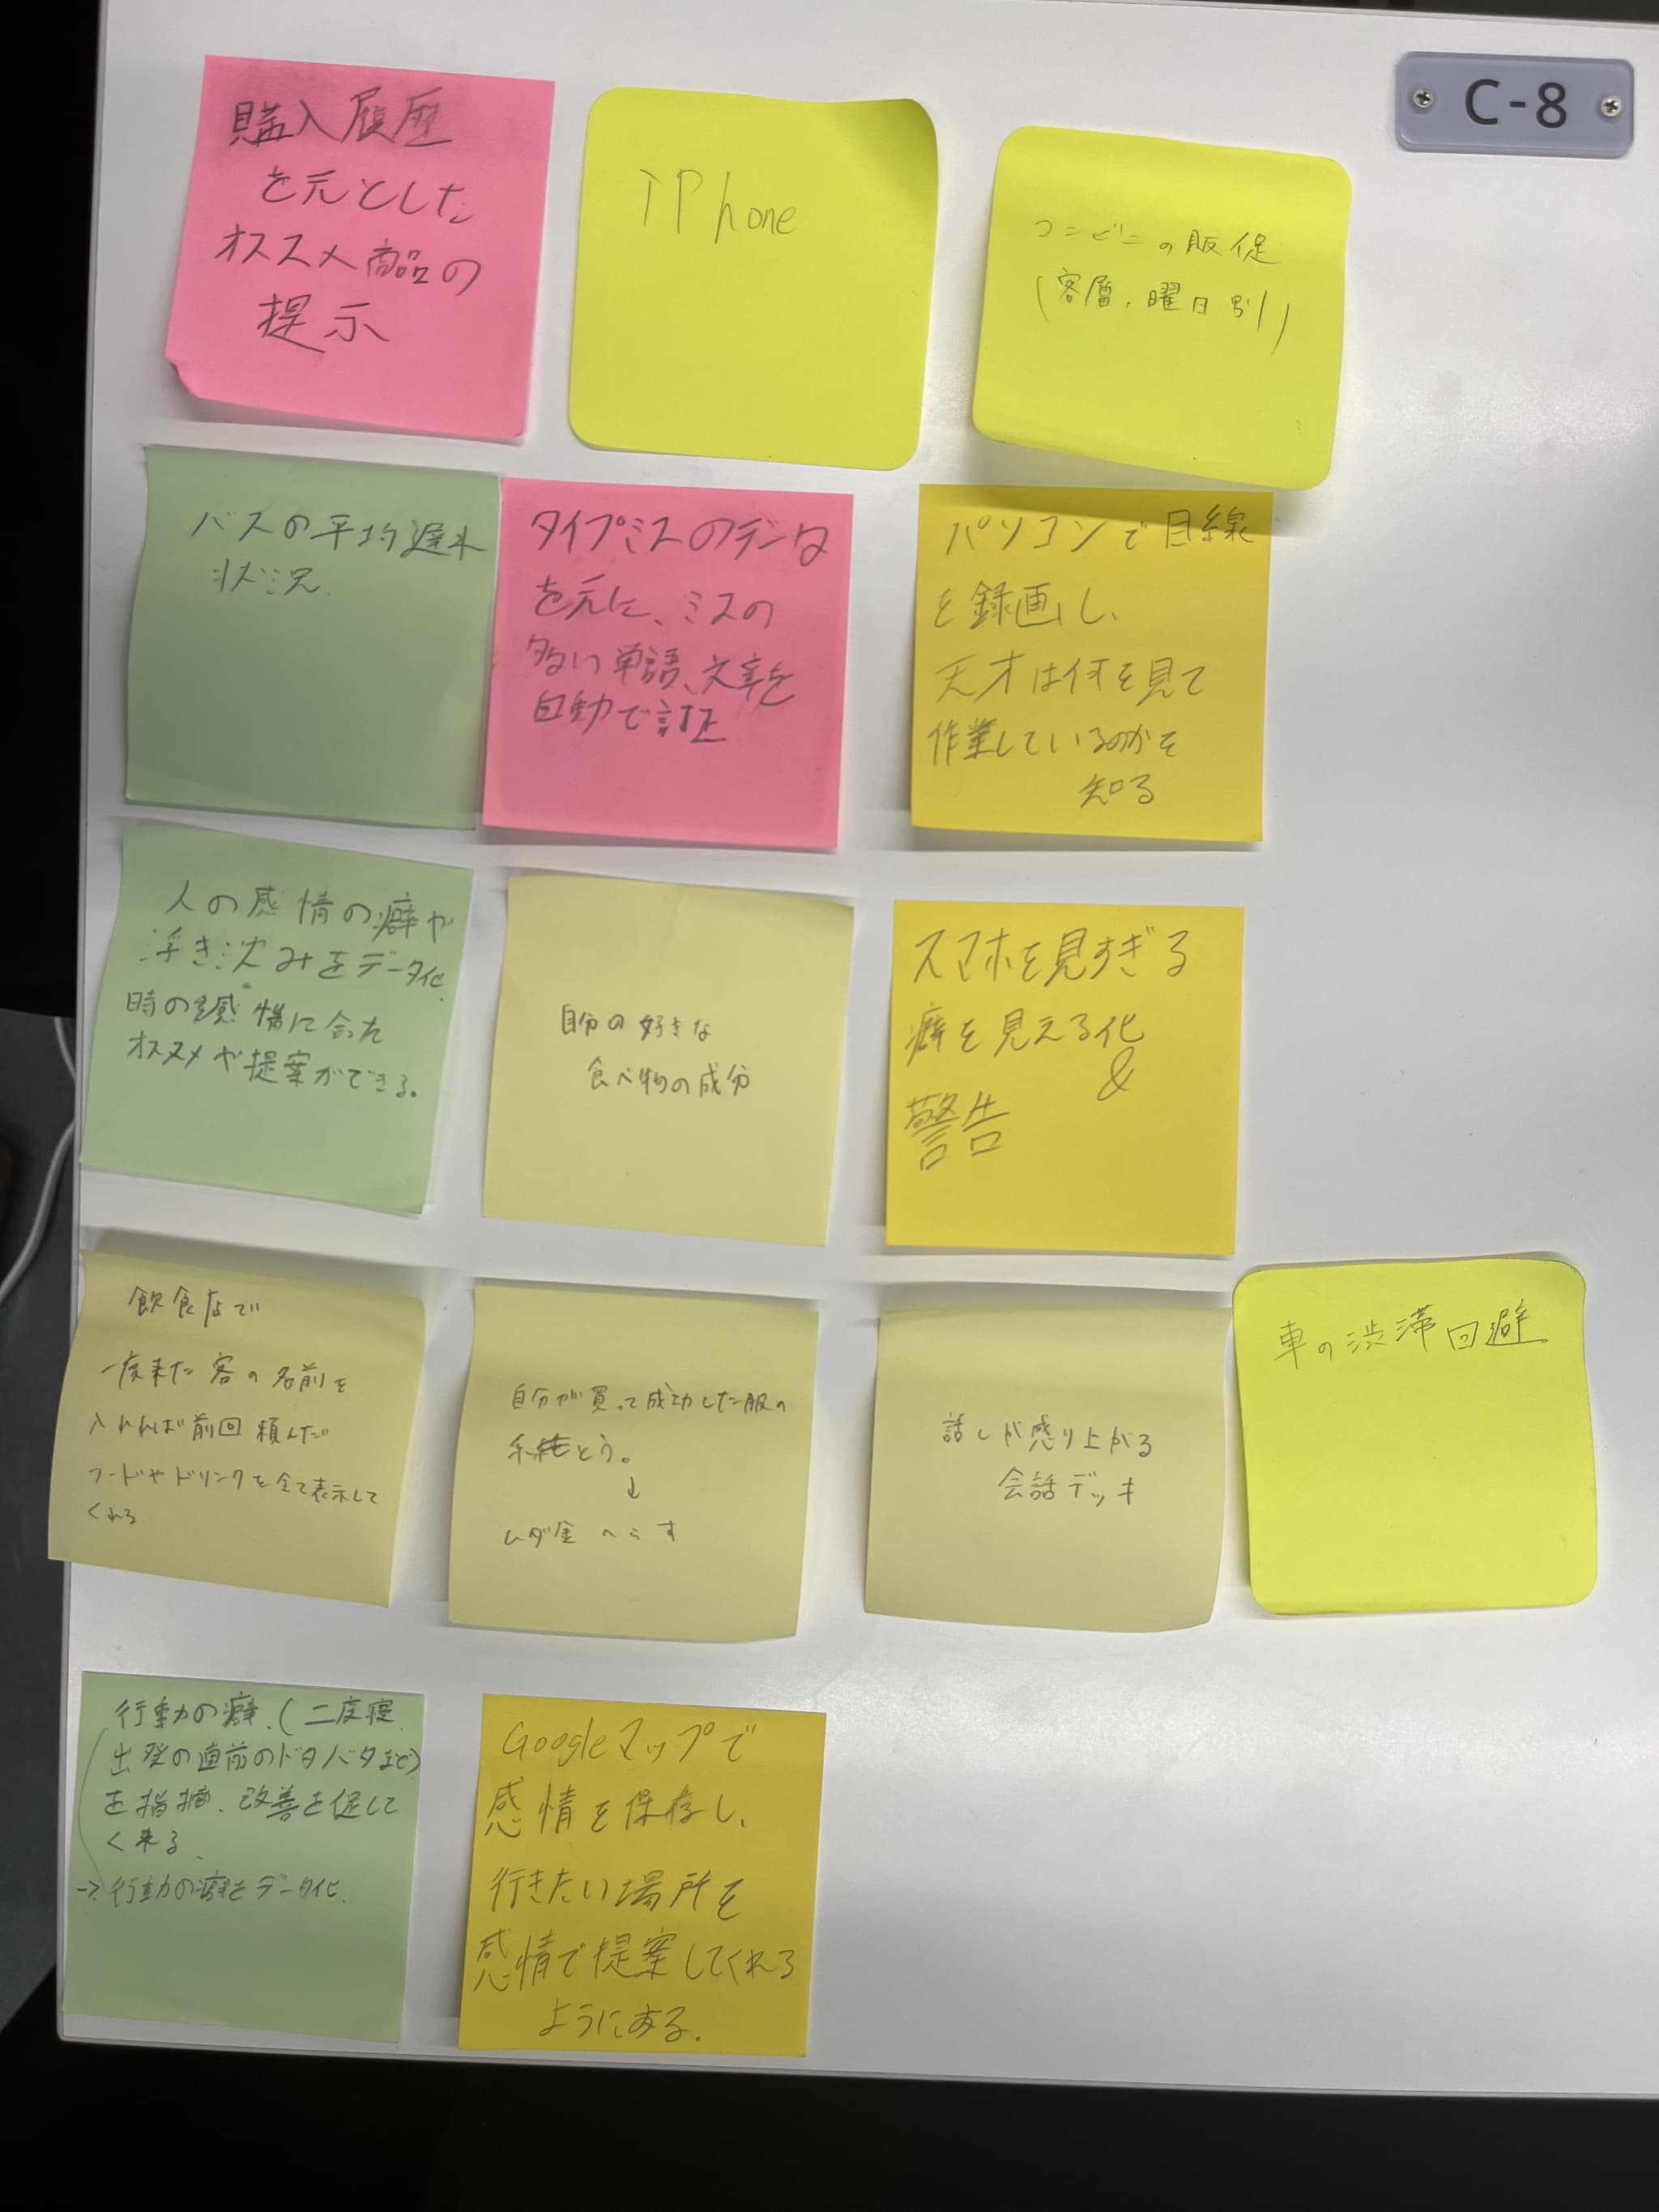 C-8
購入履歴
を元とした
オススメ商品の
提示
iPhone
コンビニの販促
(客層,曜日別)
バスの平均遅れ
状況.
タイプミスのデータ
を元に、ミスの
多い単語、文章を
自動で訂正
パソコンで目線
を録画し、
天才は何を見て
作業しているのかを
知る
人の感情の癖や
浮き沈みをデータ化、
時の感情に合った
オススメや提案ができる。
自分の好きな
食べ物の成分
スマホを見すぎる
癖を見える化
&
警告
飲食店で
一度来た客の名前を
入れれば前回頼んだ
フードやドリンクを全て表示して
くれる
自分が買って成功した服の
系統とう。
↓
ムダ金へらす
話しが盛り上がる
会話デッキ
車の渋滞回避
行動の癖、(二度寝、
出発の直前のドタバタなど)
を指摘、改善を促して
く来る、
→行動の癖をデータ化.
Googleマップで
感情を保存し、
行きたい場所を
感情で提案してくれる
ようにある.